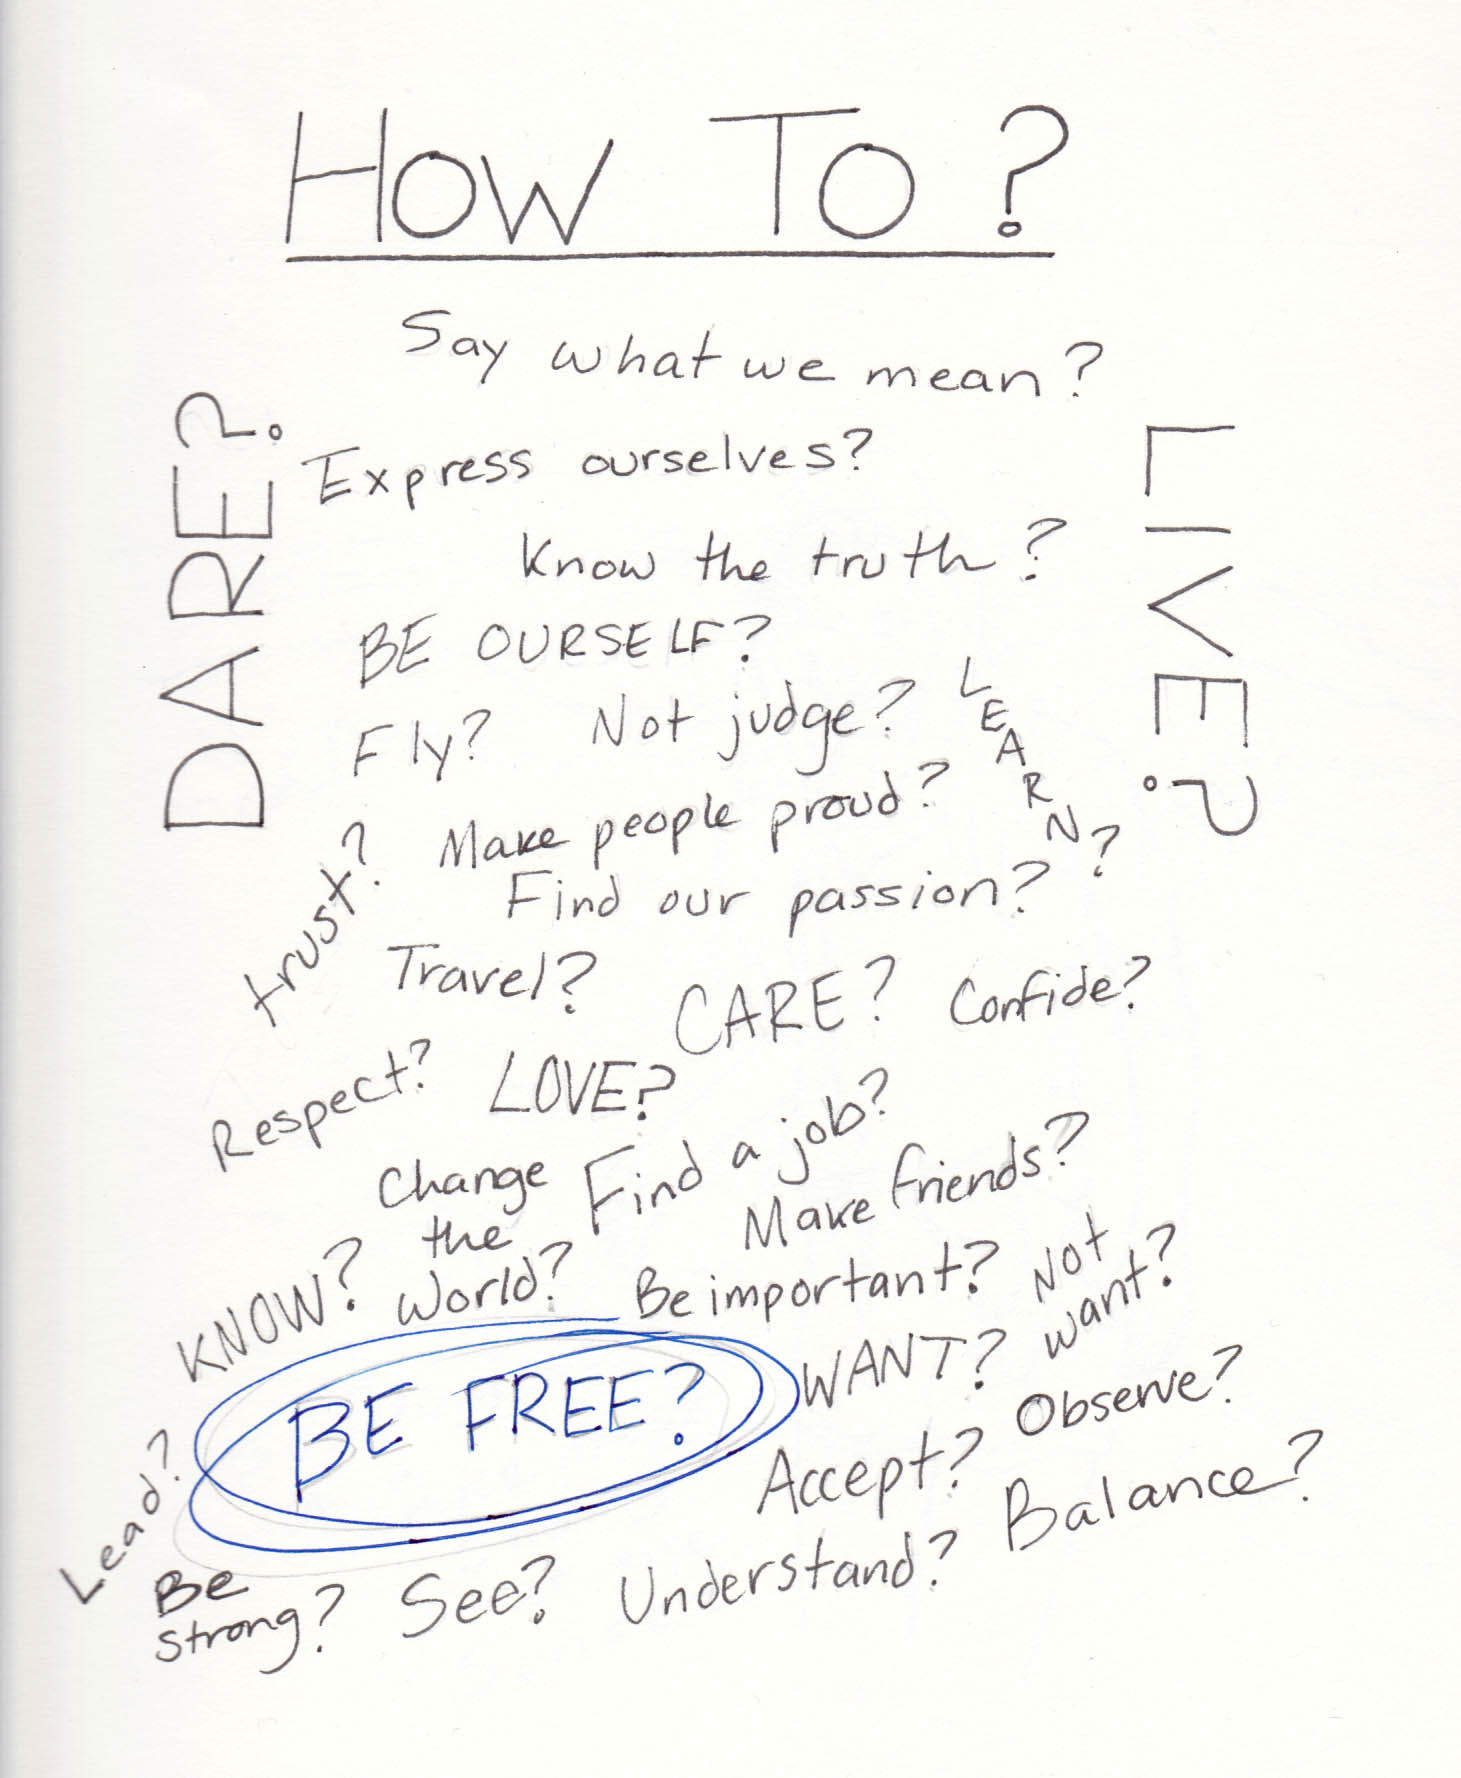 HOW TO?
Say what we mean?
DARE?
LIVE?
Express ourselves?
Know the truth?
BE OURSELF?
Fly?
Not judge?
LEARN?
Make people proud?
trust?
Find our passion?
Travel?
CARE?
Confide?
Respect?
LOVE?
Find a job?
Change
the
World?
Make friends?
KNOW?
Be important?
Not
want?
BE FREE?
WANT?
Observe?
Lead?
Accept?
Balance?
Be
strong?
See?
Understand?